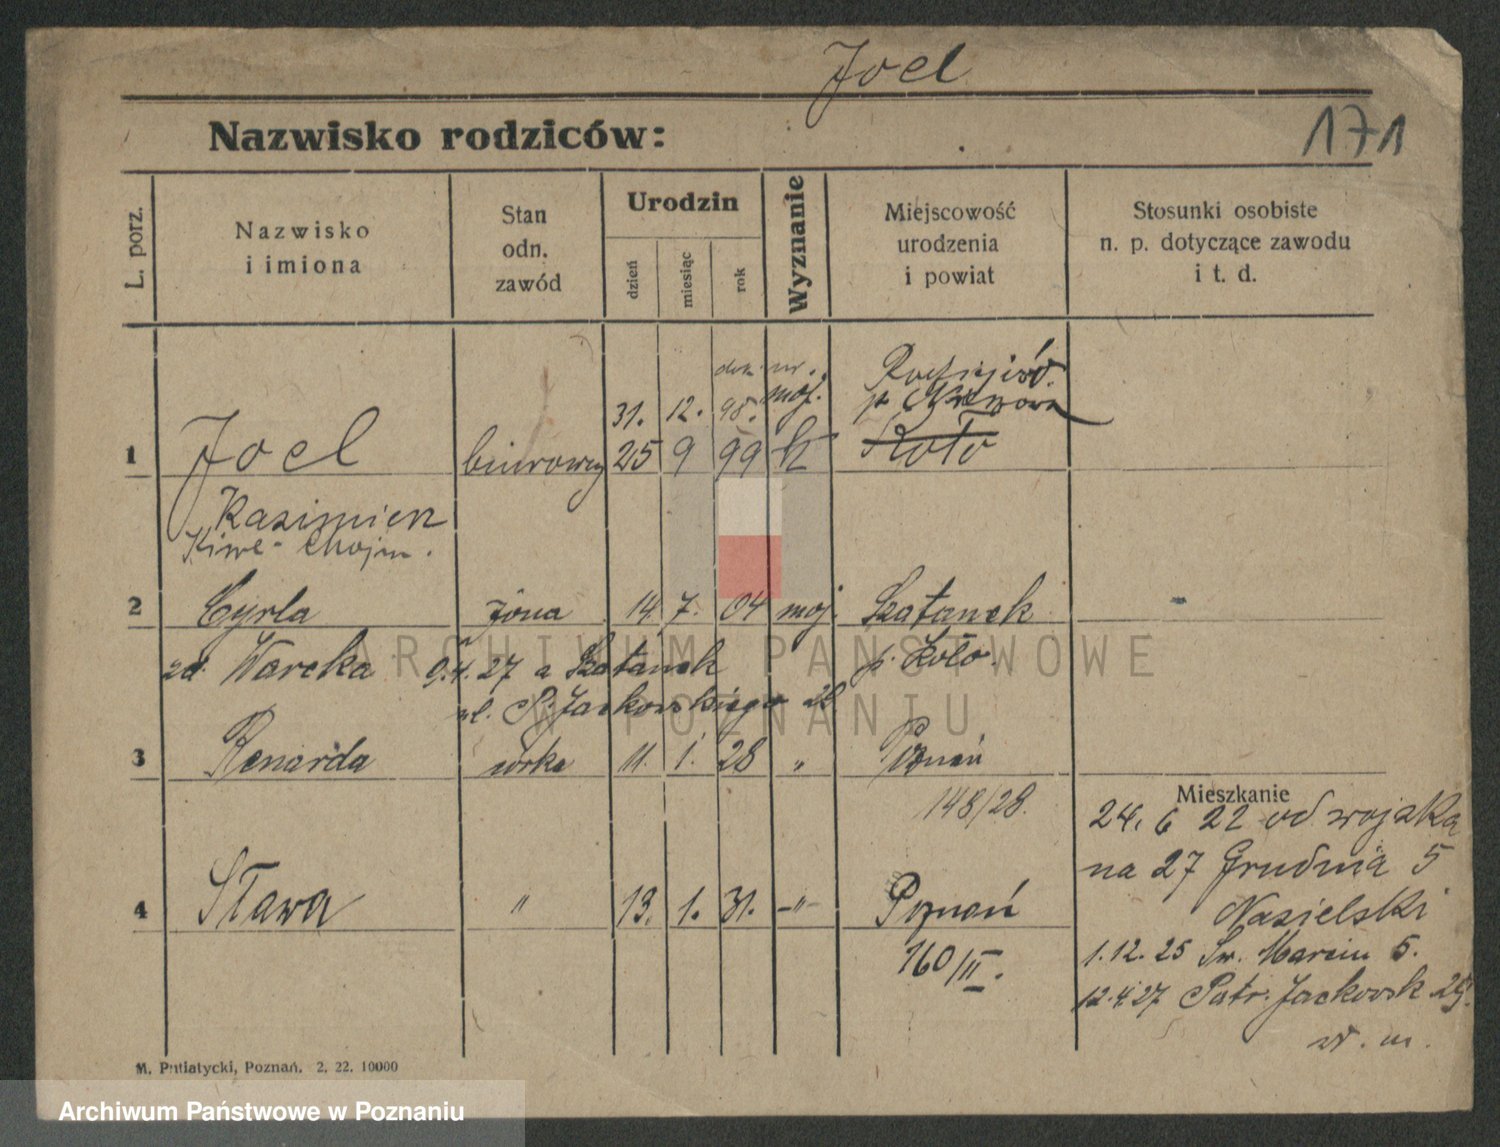 Joel
171
Nazwisko rodziców:
L. porz.
Nazwisko
i imiona
Stan
odn.
zawód
Urodzin
dzień
miesiąc
rok
Wyznanie
Miejscowość
urodzenia
i powiat
Stosunki osobiste
n. p. dotyczące zawodu
i t. d.
31. 12. 98. moj.
1 Joel biurowy 25 9 99 Koło
Kazimierz
2 Cyrla żona 14. 7. 04 moj. Szatanek
zd. Warcka 9.4.27 a Szatanek p. Koło.
ul. P. Jackowskiego
3 Renarda córka 11. 1. 28 " Poznań
148/28.
Mieszkanie
24. 6 22 od wojska
na 27 Grudnia 5
Nasielski
4 Sława " 13. 1. 31. -"- Poznań
160/II.
1.12.25 Św. Marcin 5.
12.4.27 Patr. Jackowsk
w. m.
M. Putiatycki, Poznań. 2. 22. 10000
ARCHIWUM PAŃSTWOWE
W POZNANIU
Archiwum Państwowe w Poznaniu